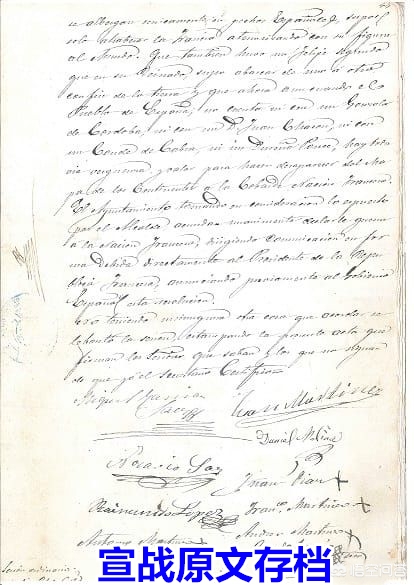 se albergan unicamente en pechos Españoles, supo el
solo la Francia atemorizando con su figura
al Mundo. Que tambien hubo un Felipe Segundo
que en su Reinado supo abarcar de uno a otro
confin de la tierra y que ahora aun cuando el
Pueblo de España, no cuenta ni con un Gonzalo
de Cordoba, ni con un D. Juan Chacon, ni con
un Conde de Cabra, ni un Ponce, hay toda
via verguenza y valor para hacer desaparecer del Ma
pa de los Continentes a la Cobarde Nacion Francesa.
El Ayuntamiento tomando en consideracion lo espuesto
por el Alcalde acuerda declarar la guerra
a la Nacion Francesa dirigiendo comunicacion en for
ma debida directamente al Presidente de la Repu
blica Francesa, anunciando previamente al Gobierno
Español esta resolucion.
no teniendo ninguna otra cosa que acordar se
lebanto la sesion, estampando la presente acta que
firman los Señores que saben y los que no signan
de que yo el Secretario Certifico=
Miguel Garcia
Juan Martinez
Saez
Daniel Molina
Rosario Saez
Juan Diaz
Raimundo Lopez
Fran.co Martinez
Antonio Martinez
Andres Martinez
宣战原文存档
悟空问答